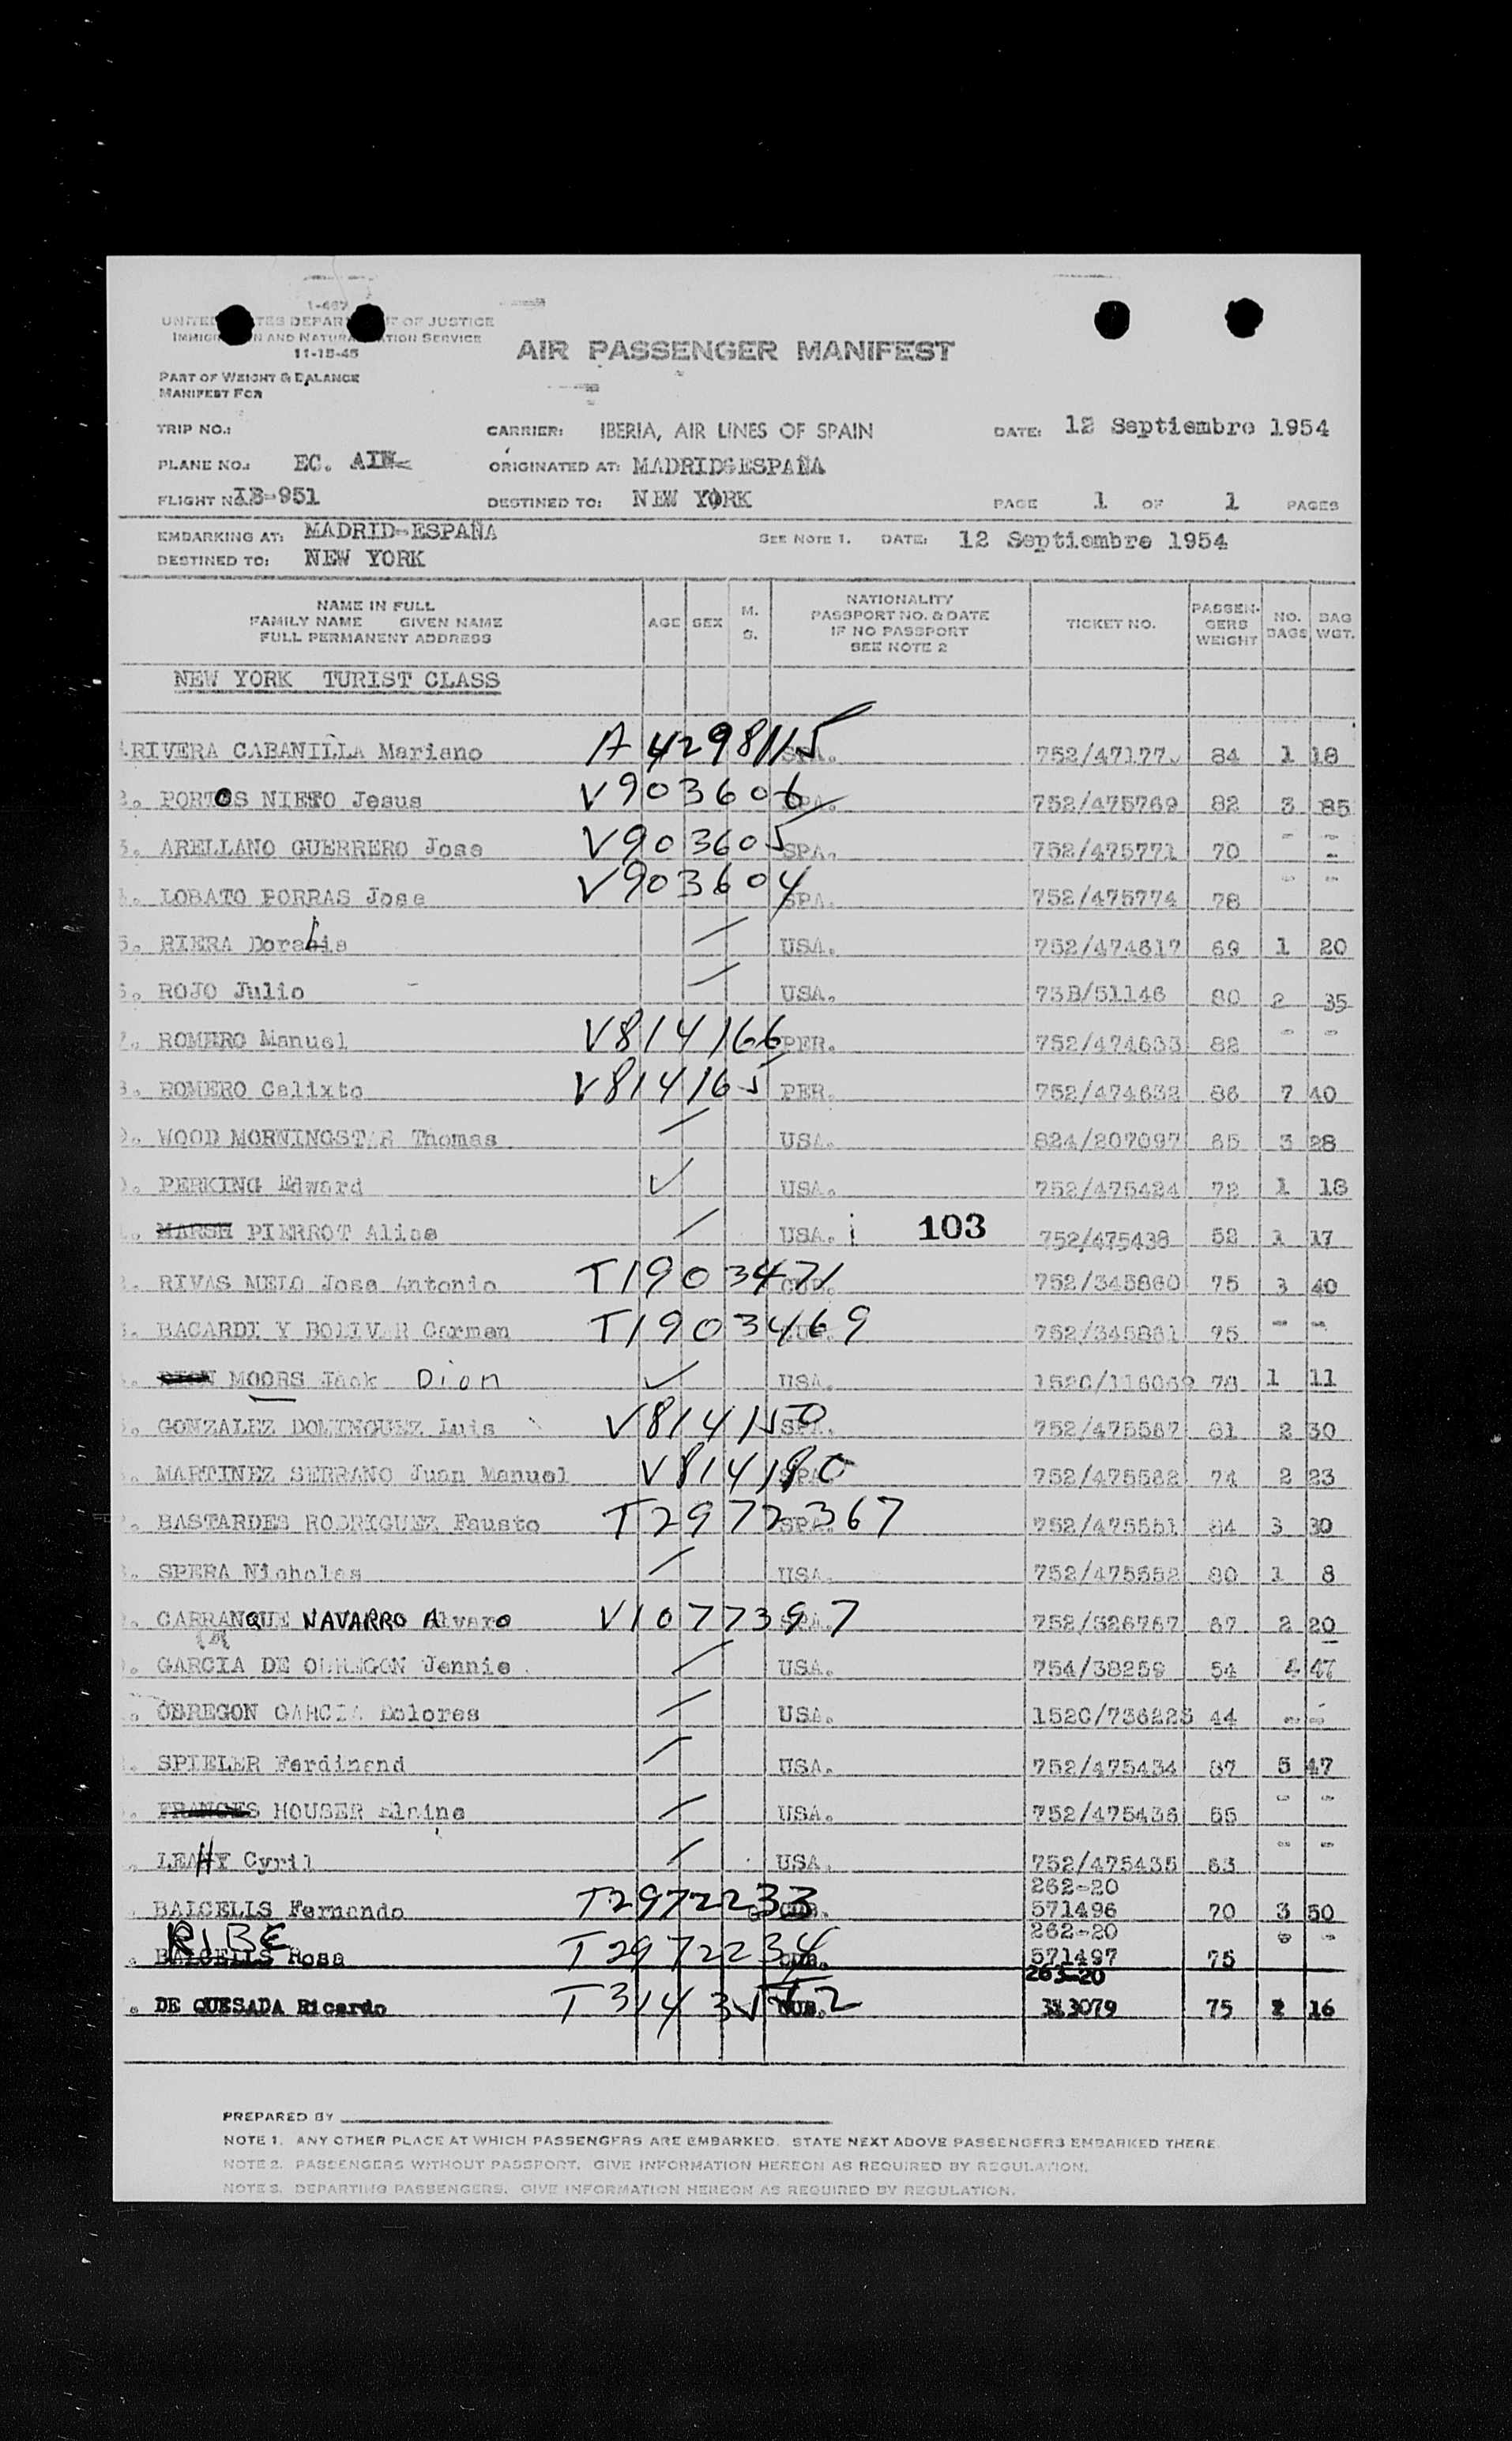 1-467
UNITED STATES DEPARTMENT OF JUSTICE
IMMIGRATION AND NATURALIZATION SERVICE
11-15-45
AIR PASSENGER MANIFEST
PART OF WEIGHT & BALANCE
MANIFEST FOR
TRIP NO.: CARRIER: IBERIA, AIR LINES OF SPAIN DATE: 12 Septiembre 1954
PLANE NO.: EC. AIN ORIGINATED AT: MADRID-ESPAÑA
FLIGHT NO. IB-951 DESTINED TO: NEW YORK PAGE 1 OF 1 PAGES
EMBARKING AT: MADRID-ESPAÑA SEE NOTE 1. DATE: 12 Septiembre 1954
DESTINED TO: NEW YORK
NAME IN FULL FAMILY NAME GIVEN NAME FULL PERMANENT ADDRESS AGE SEX M. S. NATIONALITY PASSPORT NO. & DATE IF NO PASSPORT SEE NOTE 2 TICKET NO. PASSENGERS WEIGHT NO. BAGS BAG WGT.
NEW YORK TURIST CLASS
RIVERA CABANILLA Mariano A4298115 SPA. 752/47177 84 1 18
2. PORTOS NIETO Jesus V903606 SPA. 752/475769 82 3 85
3. ARELLANO GUERRERO Jose V903605 SPA. 752/475771 70 - -
LOBATO PORRAS Jose V903604 SPA. 752/475774 78 - -
5. RIERA USA. 752/474617 69 1 20
6. ROJO Julio USA. 73B/51146 80 2 35
7. ROMERO Manuel V814166 PER. 752/474633 82 - -
8. ROMERO Calixto V814165 PER. 752/474632 86 7 40
9. WOOD MORNINGSTAR Thomas USA. 824/207097 65 3 28
PERKING Edward USA. 752/475424 72 1 18
MARSH PIERROT Alice USA. 103 752/475438 52 1 17
RIVAS MELO Jose Antonio T1903471 CUB. 752/345860 75 3 40
BACARDI Y BOLIVAR Carmen T1903469 CUB. 752/345861 75 - -
DION MOORS Jack Dion USA. 152C/116069 78 1 11
GONZALEZ DOMINGUEZ Luis V814150 SPA. 752/475587 81 2 30
MARTINEZ SERRANO Juan Manuel V814180 SPA. 752/475582 74 2 23
BASTARDES RODRIGUEZ Fausto T2972367 SPA. 752/475551 84 3 30
SPERA Nicholas USA. 752/475552 80 1 8
CARRANQUE NAVARRO Alvaro V1077397 SPA. 752/326767 67 2 20
GARCIA DE OBREGON Jennie USA. 754/38259 54 4 47
OBREGON GARCIA Dolores USA. 152C/736225 44 - -
SPIELER Ferdinand USA. 752/475434 87 5 47
FRANCES HOUSER Elaine USA. 752/475436 55 - -
LEAHY Cyril USA. 752/475435 63 - -
BALCELLS Fernando T2972233 CUB. 262-20 571496 70 3 50
RIBE
BALCELLS Rosa T2972234 CUB. 262-20 571497 75 - -
DE QUESADA Ricardo CUB. 263-20 333079 75 2 16
PREPARED BY
NOTE 1. ANY OTHER PLACE AT WHICH PASSENGERS ARE EMBARKED. STATE NEXT ABOVE PASSENGERS EMBARKED THERE.
NOTE 2. PASSENGERS WITHOUT PASSPORT. GIVE INFORMATION HEREON AS REQUIRED BY REGULATION.
NOTE 3. DEPARTING PASSENGERS. GIVE INFORMATION HEREON AS REQUIRED BY REGULATION.